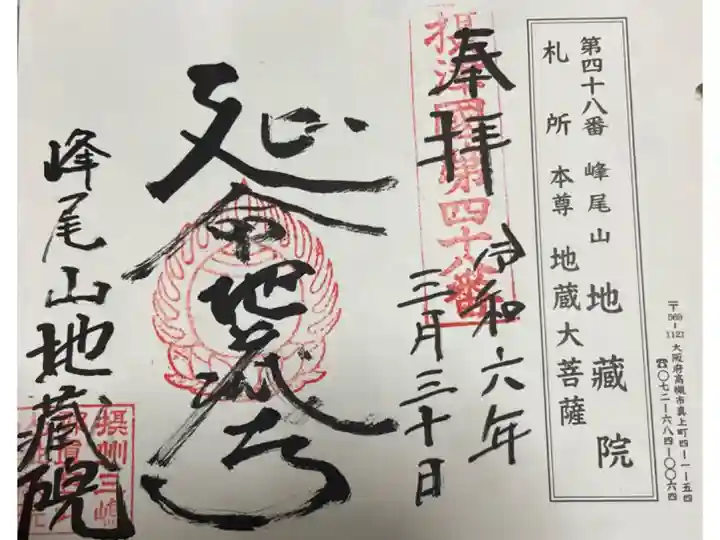 第四十八番 峰尾山 地蔵院
札所本尊 地蔵大菩薩
〒569-1121 大阪府高槻市真上町四-一-五四
☎〇七二-六八四-〇〇六四
奉拝
摂津國第四十八番
令和六年
三月三十日
延命地蔵尊
峰尾山地蔵院
摂州三嶋